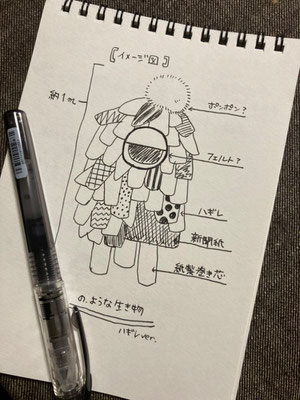 【イメージ図】
約1m
ポンポン?
フェルト?
ハギレ
新聞紙
紙製巻き芯
の、ような生き物
ハギレver.